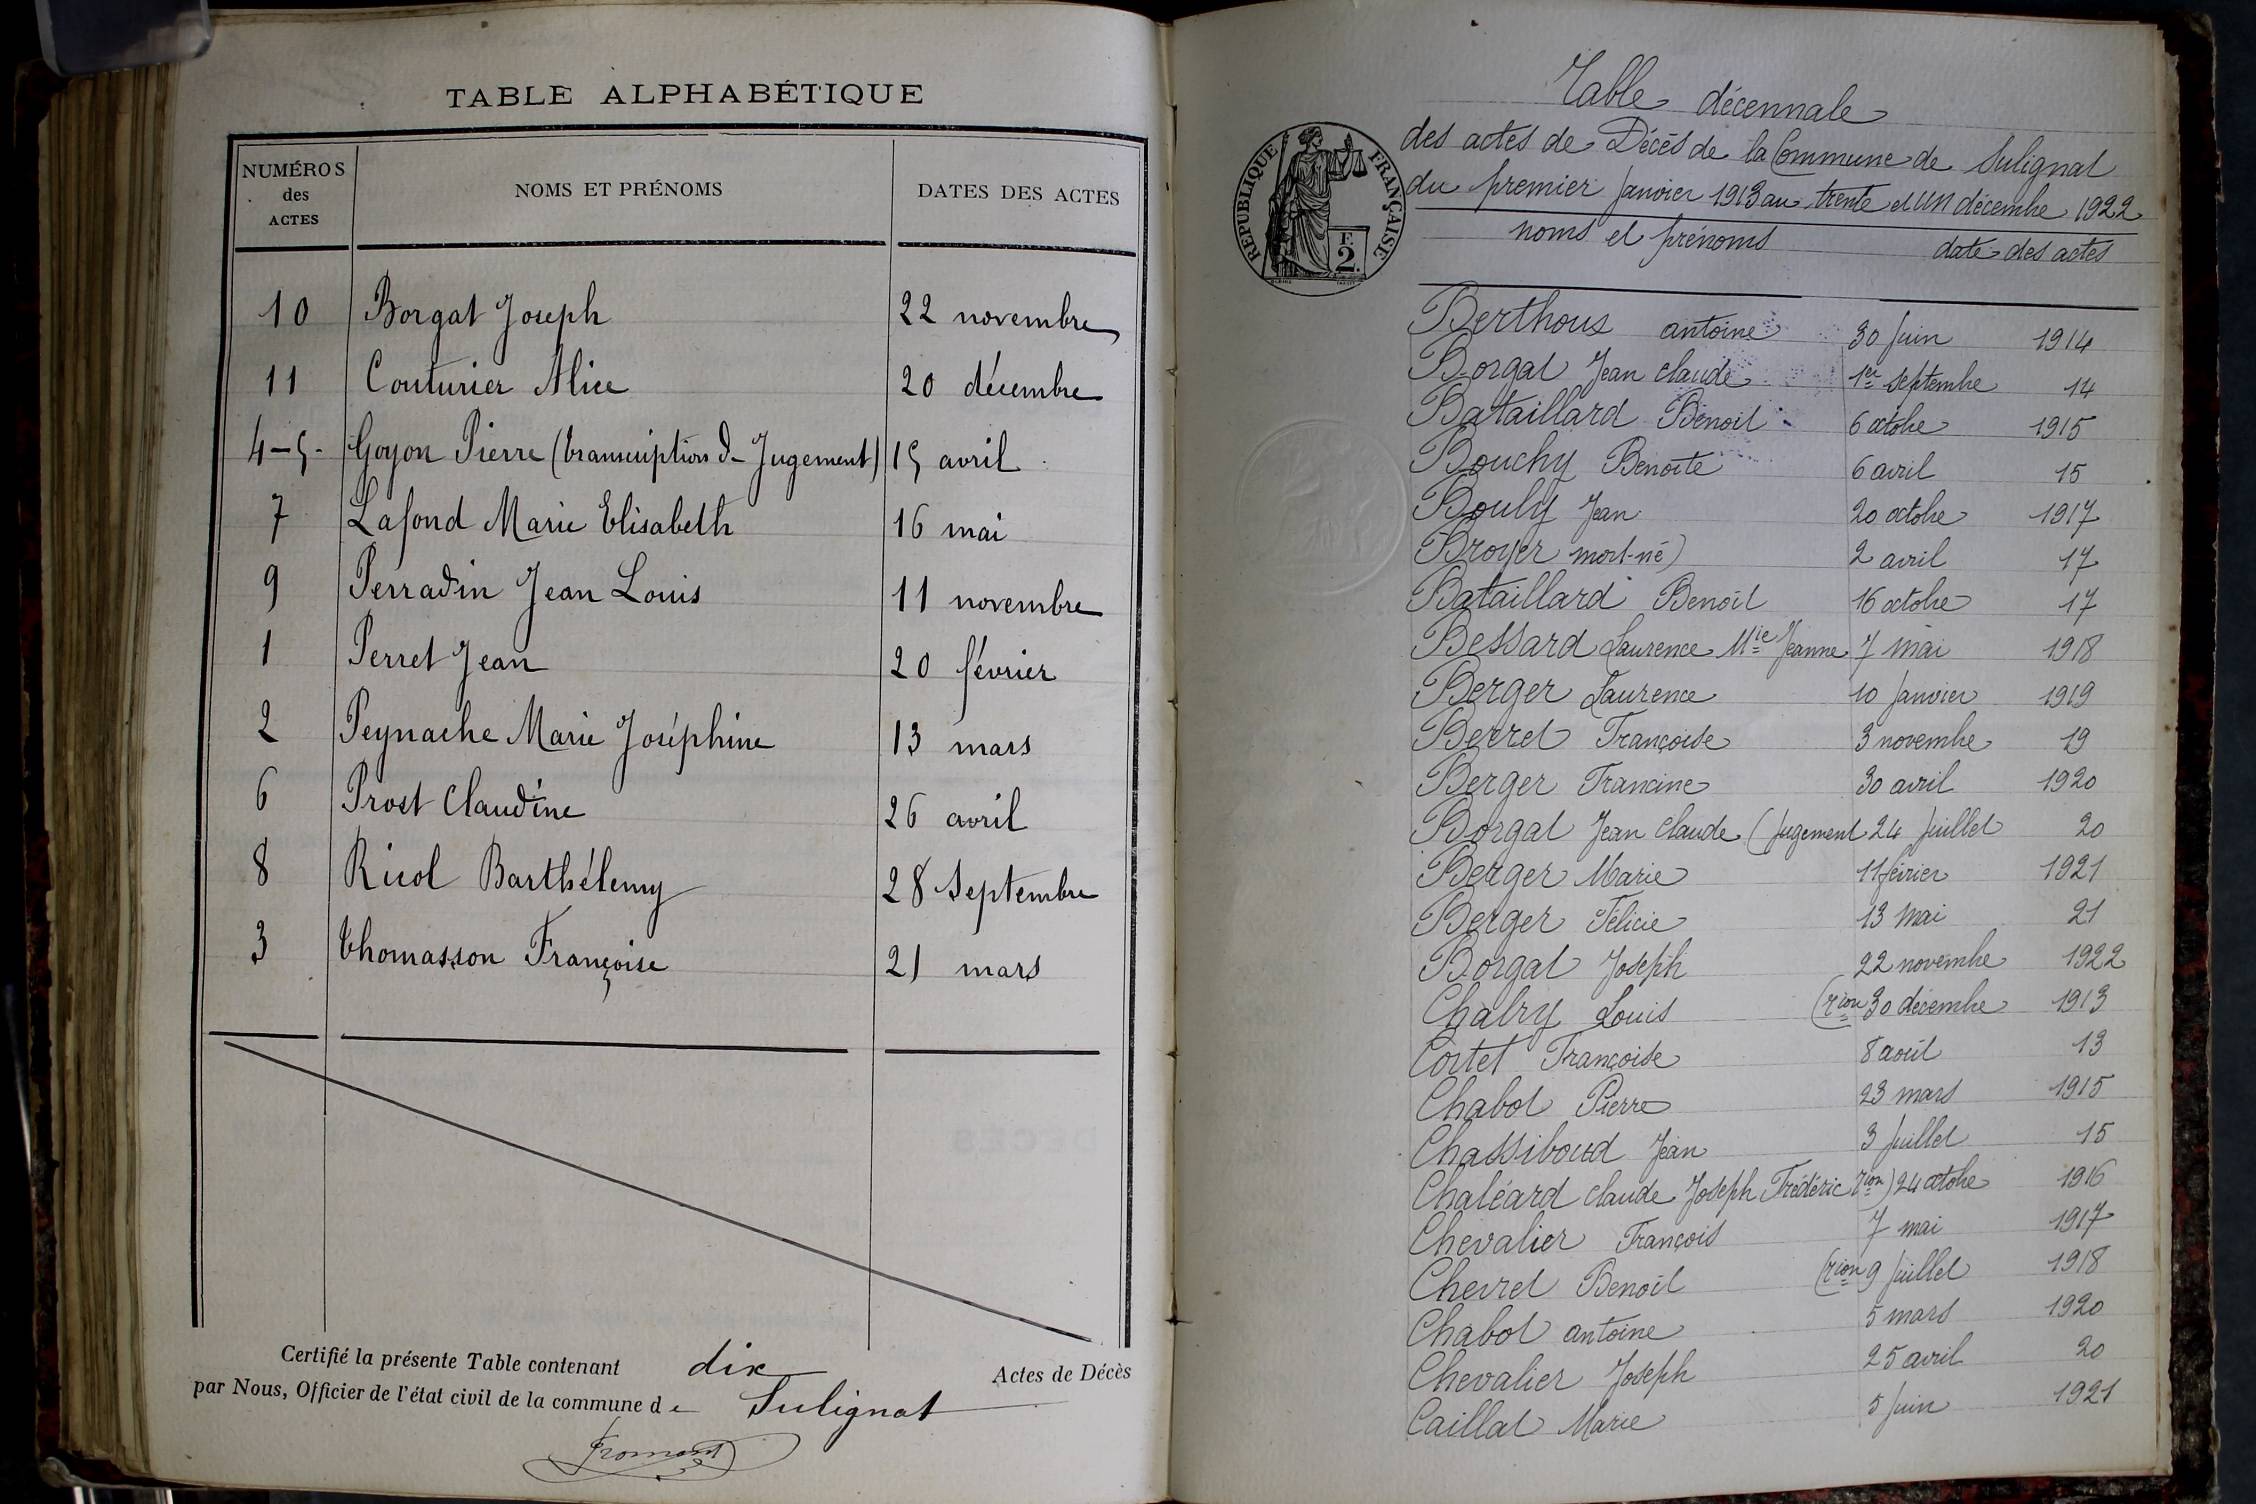 TABLE ALPHABÉTIQUE
NUMÉROS des ACTES NOMS ET PRÉNOMS DATES DES ACTES
10 Borgat Joseph 22 novembre
11 Couturier Alice 20 décembre
4-5- Goyon Pierre (transcription de Jugement) 15 avril
7 Lafond Marie Elisabeth 16 mai
9 Perradin Jean Louis 11 novembre
1 Perret Jean 20 février
2 Peynache Marie Joséphine 13 mars
6 Prost Claudine 26 avril
8 Ricol Barthélemy 28 septembre
3 Thomasson Françoise 21 mars
Certifié la présente Table contenant dix Actes de Décès
par Nous, Officier de l'état civil de la commune de Sulignat
Table décennale
des actes de Décès de la Commune de Sulignat
du premier Janvier 1913 au trente et un décembre 1922
RÉPUBLIQUE FRANÇAISE
F. 2.
noms et prénoms date des actes
Berthous antoine 30 Juin 1914
Borgat Jean claude 1er Septembre 14
Bataillard Benoit 6 octobre 1915
Bouchy Benoîte 6 avril 15
Bouly Jean 20 octobre 1917
Broyer mort-né) 2 avril 17
Bataillard Benoît 16 octobre 17
Bessard Laurence Mie Jeanne 7 mai 1918
Berger Laurence 10 Janvier 1919
Berret Françoise 3 novembre 19
Berger Francine 30 avril 1920
Borgat Jean claude (Jugement 24 Juillet 20
Berger Marie 11 février 1921
Berger Félicie 13 mai 21
Borgat Joseph 22 novembre 1922
Chabry Louis (rion 30 décembre 1913
Cortet Françoise 8 août 13
Chabot Pierre 23 mars 1915
Chassiboud Jean 3 Juillet 15
Chaléard claude Joseph Frédéric rion) 24 octobre 1916
Chevalier François 7 mai 1917
Chevret Benoît (rion 9 Juillet 1918
Chabot antoine 5 mars 1920
Chevalier Joseph 25 avril 20
Caillat Marie 5 Juin 1921